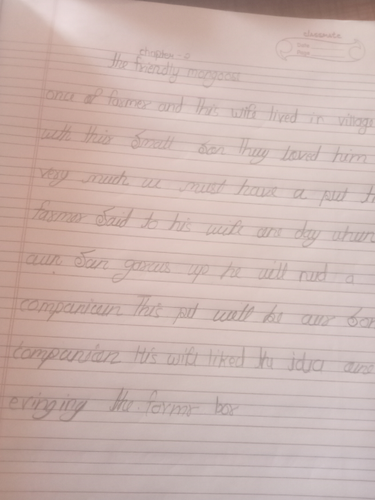 classmate
Date
Page
chapter-2
the friendly mongoose
once of farmer and this wife lived in village
with this small son they loved him
very much we must have a put th
farmer said to his wife one day when
aur son garows up he will nud a
companion this pet will be aur son
companion His wife liked the idja ane
evinging the formr bor